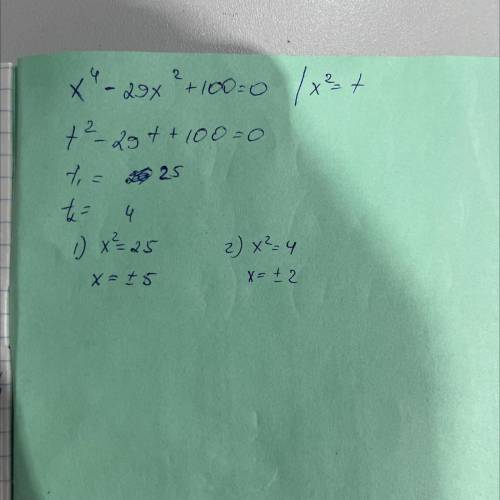 x⁴ - 29x² + 100 = 0 / x² = t
t² - 29t + 100 = 0
t₁ = 25
t₂ = 4
1) x² = 25 2) x² = 4
x = ± 5 x = ± 2